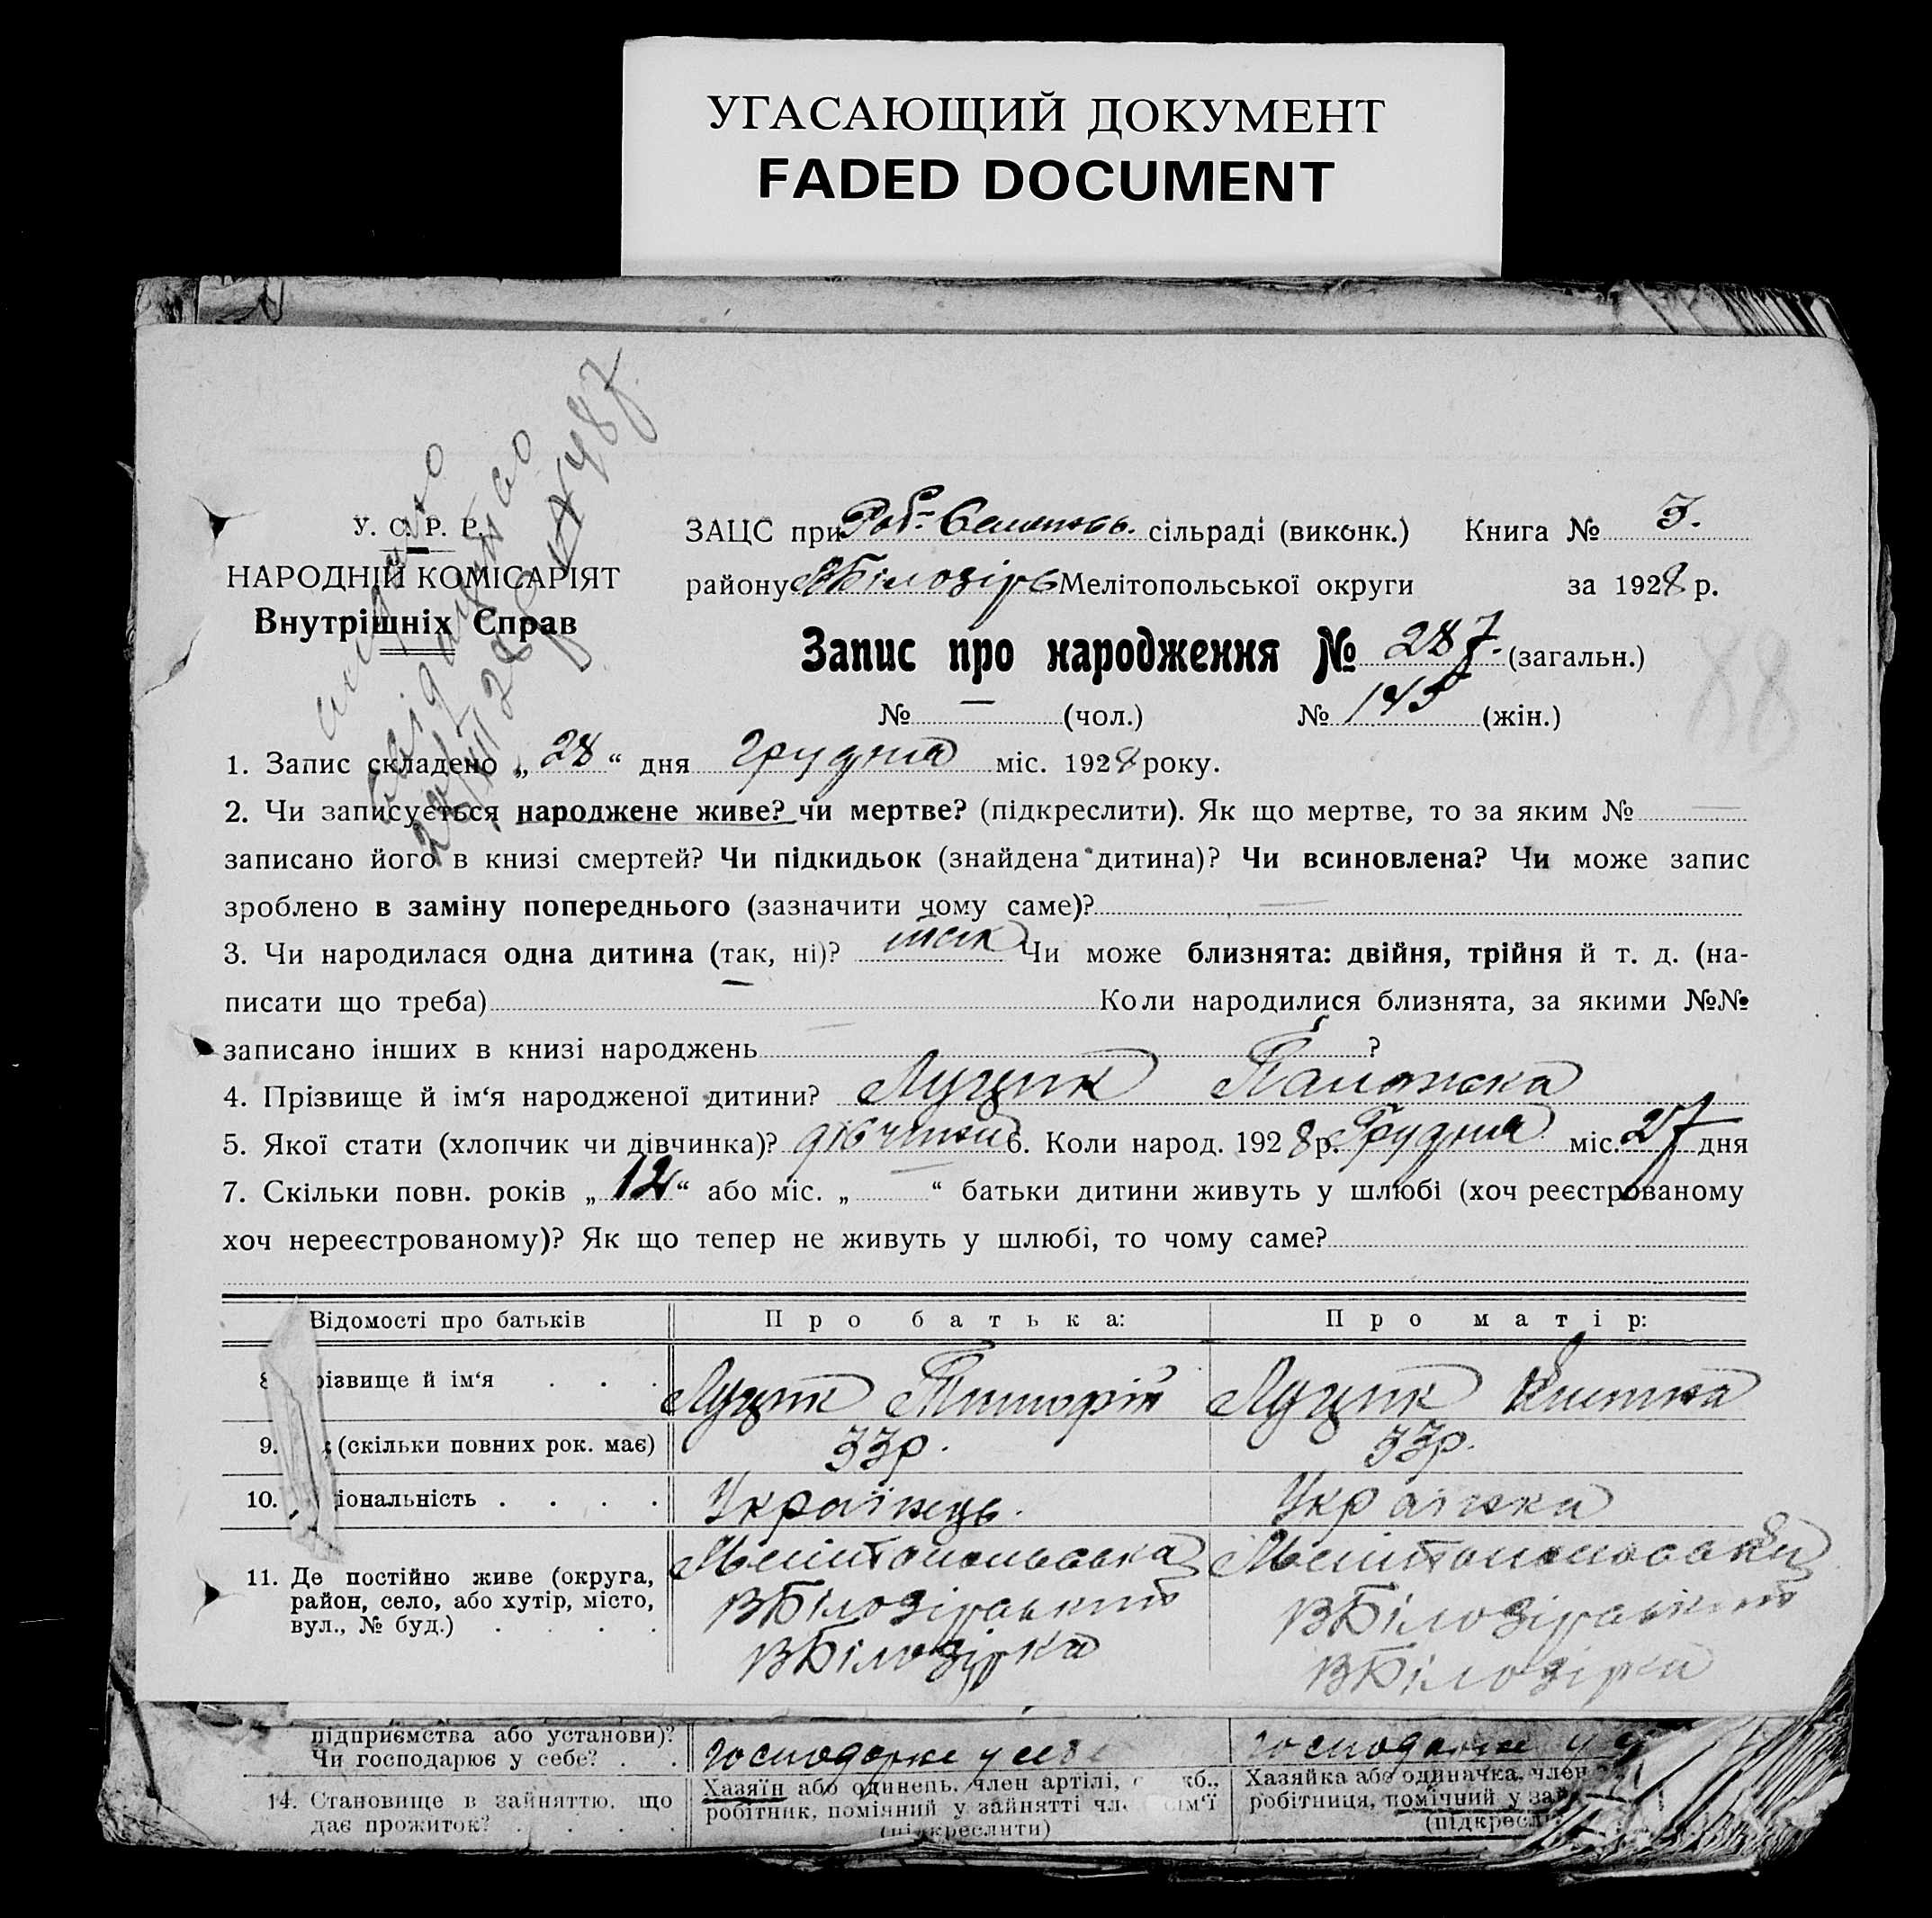 УГАСАЮЩИЙ ДОКУМЕНТ
FADED DOCUMENT
У. С. Р. Р.
НАРОДНІЙ КОМІСАРІЯТ
Внутрішніх Справ
ЗАЦС при Роб.- сільраді (виконк.) Книга № 3.
району ВБілозірь Мелітопольської округи за 1928 р.
Запис про народження № 287. (загальн.)
№ — (чол.) № 145 (жін.)
88
1. Запис складено „ 28 “ дня грудня міс. 1928 року.
2. Чи записується народжене живе? чи мертве? (підкреслити). Як що мертве, то за яким № —
записано його в книзі смертей? Чи підкидьок (знайдена дитина)? Чи всиновлена? Чи може запис
зроблено в заміну попереднього (зазначити чому саме)? —
3. Чи народилася одна дитина (так, ні)? так Чи може близнята: двійня, трійня й т. д. (на-
писати що треба) Коли народилися близнята, за якими №№
записано інших в книзі народжень ?
4. Прізвище й ім‘я народженої дитини? Луцик
5. Якої стати (хлопчик чи дівчинка)? дівчина 6. Коли народ. 1928 р. Грудня міс. 27 дня
7. Скільки повн. років „ 12 “ або міс. „ — “ батьки дитини живуть у шлюбі (хоч реєстрованому
хоч нереєстрованому)? Як що тепер не живуть у шлюбі, то чому саме?
Відомості про батьків Про батька: Про матір:
різвище й ім‘я . . . Луцик Луцик
9. (скільки повних рок. має) 33р. 33р.
10. іональність . . . . Українець. Українка
11. Де постійно живе (округа, район, село, або хутір, місто, вул., № буд.) . . . .
Мелітопольська Мелітопольська
ВБілозірський ВБілозірський
ВБілозірка ВБілозірка
підприємства або установи)?
Чи господарює у себе? . . господарює у себе господарює у
14. Становище в зайняттю, що дає прожиток? . . . .
Хазяїн або одинець, член артілі, кб., Хазяйка або одиначка, член
робітник, помічний у зайнятті чл. сім‘ї робітниця, помічний у зай
(підкреслити) (підкресли